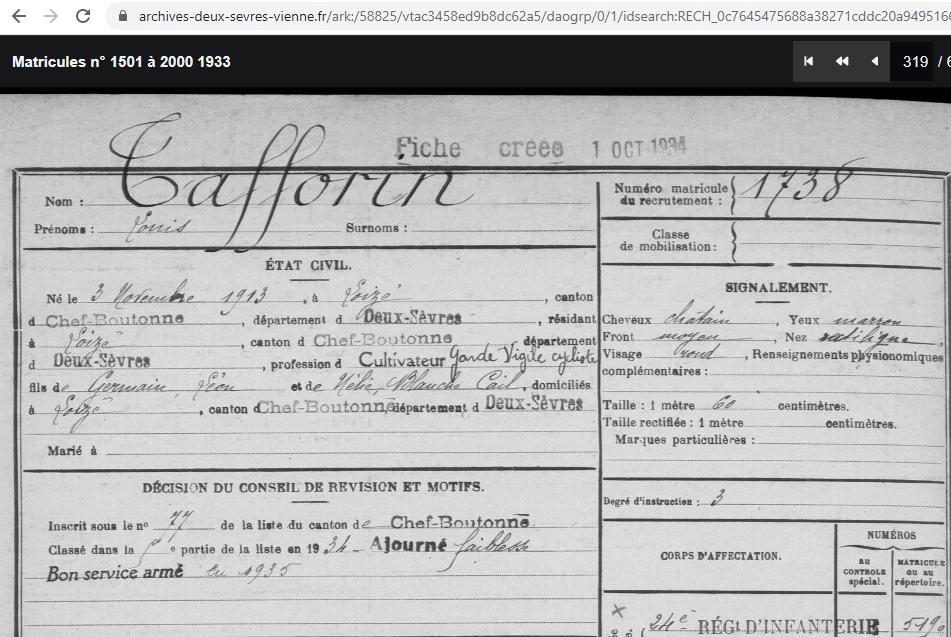 archives-deux-sevres-vienne.fr/ark:/58825/vtac3458ed9b8dc62a5/daogrp/0/1/idsearch:RECH_0c7645475688a38271cddc20a949516
Matricules n° 1501 à 2000 1933
319 / 6
Fiche creee 1 OCT 1934
Nom : Tafforin
Prénoms : Louis Surnoms :
ÉTAT CIVIL.
Né le 3 Novembre 1913, à Loizé, canton
d Chef-Boutonne, département d Deux-Sèvres, résidant
à Loizé, canton d Chef-Boutonne département
d Deux-Sèvres, profession d Cultivateur Garde Vigile cycliste
fils de Germain, Léon et de Nélie, Blanche Cail, domiciliés
à Loizé, canton d Chef-Boutonne, département d Deux-Sèvres
Marié à
DÉCISION DU CONSEIL DE REVISION ET MOTIFS.
Inscrit sous le n° 77 de la liste du canton de Chef-Boutonne
Classé dans la e partie de la liste en 1934 - Ajourné faiblesse
Bon service armé en 1935
Numéro matricule
du recrutement : 1738
Classe
de mobilisation :
SIGNALEMENT.
Cheveux chatain, Yeux marron
Front moyen, Nez rectiligne,
Visage rond, Renseignements physionomiques
complémentaires :
Taille : 1 mètre 60 centimètres.
Taille rectifiée : 1 mètre centimètres.
Marques particulières :
Degré d'instruction : 3
CORPS D'AFFECTATION.
NUMÉROS
au
CONTROLE
spécial.
MATRICULE
ou au
répertoire.
24e RÉGt D'INFANTERIE 5190